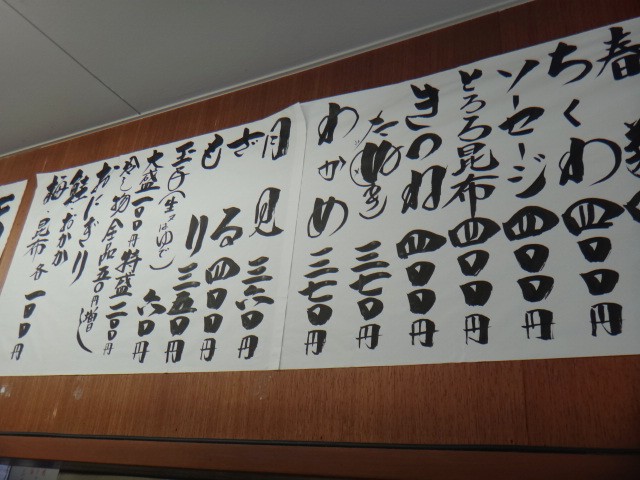 春
ちくわ 四〇〇円
ソーセージ 四〇〇円
とろろ昆布 四〇〇円
きつね 四〇〇円
たぬき 三七〇円
わかめ 三七〇円
月見 三六〇円
ざる 四〇〇円
もり 三五〇円
玉子(生・ゆで) 六〇円
大盛一〇〇円 特盛二〇〇円
冷し物全品五〇円増し
おにぎり
鮭・おかか
梅・昆布 各 一〇〇円